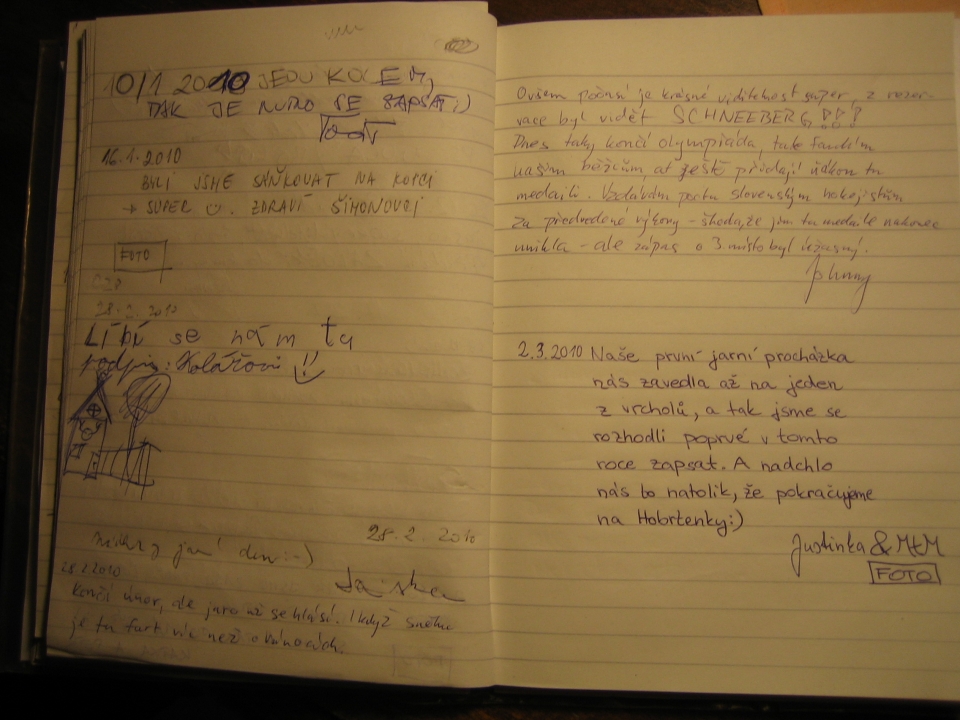 10/1 2010 JEDU KOLEM,
TAK JE NUTNO SE ZAPSAT:)
16.1.2010
BYLI JSME SÁŇKOVAT NA KOPCI
→ SUPER ☺. ZDRAVÍ ŠIMONOVCI
FOTO
28.2.2010
Líbí se nám tu
podpis: Kolářovi !!
28.2.2010
jarní den :-)
28.2.2010
Končí únor, ale jaro už se hlásí. I když sněhu
je tu furt víc než o vánocích.
FOTO
Ovšem počasí je krásné viditelnost super, z rezer-
vace byl vidět SCHNEEBERG!!!
Dnes taky končí olympiáda, tak fandím
našim běžcům, ať ještě přidají nákou tu
medaili. Vzdávám poctu slovenským hokejistům
za předvedené výkony - škoda, že jim tu medaile nakonec
unikla - ale zápas o 3. místo byl úžasný.
Johnny
2.3.2010 Naše první jarní procházka
nás zavedla až na jeden
z vrcholů, a tak jsme se
rozhodli poprvé v tomto
roce zapsat. A nadchlo
nás to natolik, že pokračujeme
na Hobrtenky:)
Justinka & M+M
FOTO